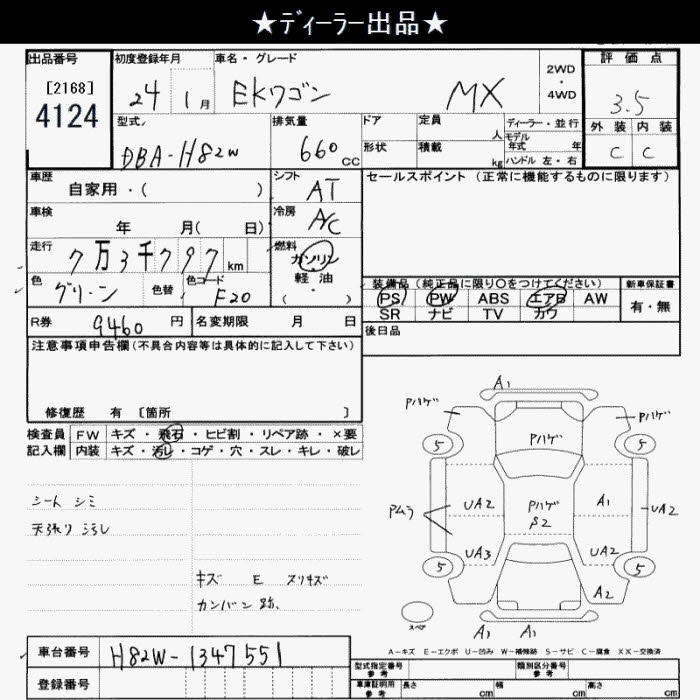 ★ディーラー出品★
出品番号
[2168]
4124
初度登録年月
24 1月
車名・グレード
EKワゴン MX
2WD
・
4WD
評価点
3.5
外装 内装
C C
型式
DBA-H82W
排気量
660cc
ドア
形状
定員 人
積載 kg
ディーラー・並行
モデル年式 年
ハンドル 左・右
車歴
自家用・( )
車検
年 月( 日)
走行
7万3千797km
色
グリーン
色替
色コード
F20
シフト
AT
冷房
AC
燃料
ガソリン
軽油
( ・ )
セールスポイント (正常に機能するものに限ります)
装備品(純正品に限り○をつけてください)
PS PW ABS エアB AW
SR ナビ TV カワ
新車保証書
有・無
後日品
R券 9460円
名変期限 月 日
注意事項申告欄(不具合内容等は具体的に記入して下さい)
修復歴 有 [箇所 ]
検査員 FW キズ・飛石・ヒビ割・リペア跡・×要
記入欄 内装 キズ・汚レ・コゲ・穴・スレ・キレ・破レ
シート シミ
天張り 汚レ
キズ E スリキズ
カンバン跡、
A1
Pハゲ Pハゲ
5 Pハゲ 5
UA2 Pハゲ A1 UA2
Pムラ S2
UA3 UA2
5 5
A2
スペア
A1 A1
A-キズ E-エクボ U-凹み W-補修跡 S-サビ C-腐食 XX-交換済
車台番号 H82W-1347551
登録番号
型式指定番号
参考
類別区分番号
参考
車庫証明用
参考
長さ cm
幅 cm
高さ cm